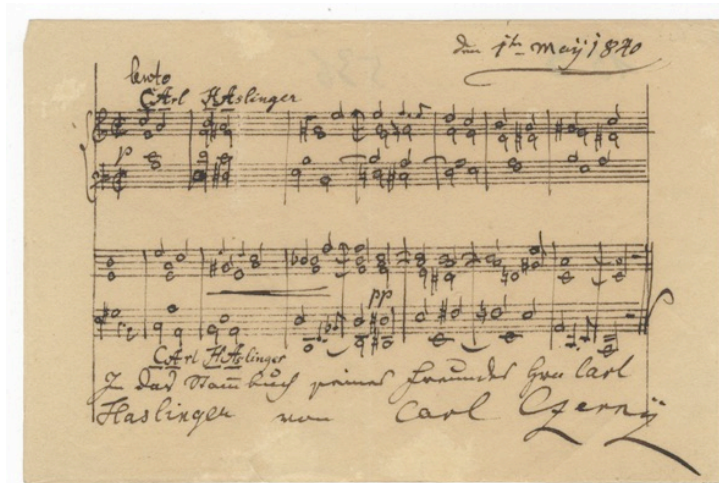 den 1ten Maÿ 1840
lento
CArl HAslinger
p
pp
CArl HAslinger
In das Stam̅buch seines Freundes Hrn Carl
Haslinger von Carl Czernÿ